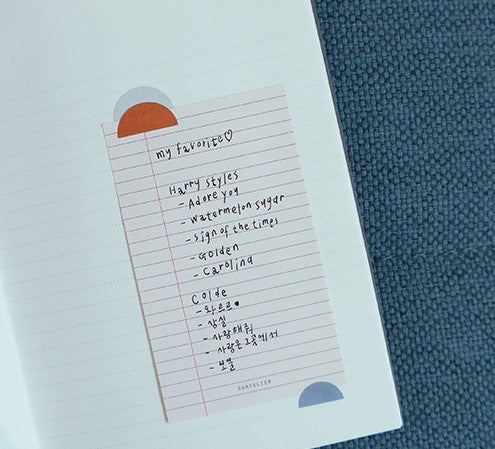 my favorite♡
Harry Styles
- Adore you
- watermelon sugar
- sign of the times
- Golden
- Carolina
Colde
- 와르르♥
- 상실
- 사랑해줘
- 사랑은 그곳에서
- 보물
SUATELIER